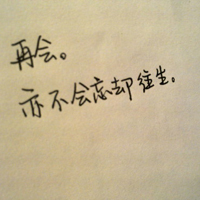 再会。
亦不会忘却往生。